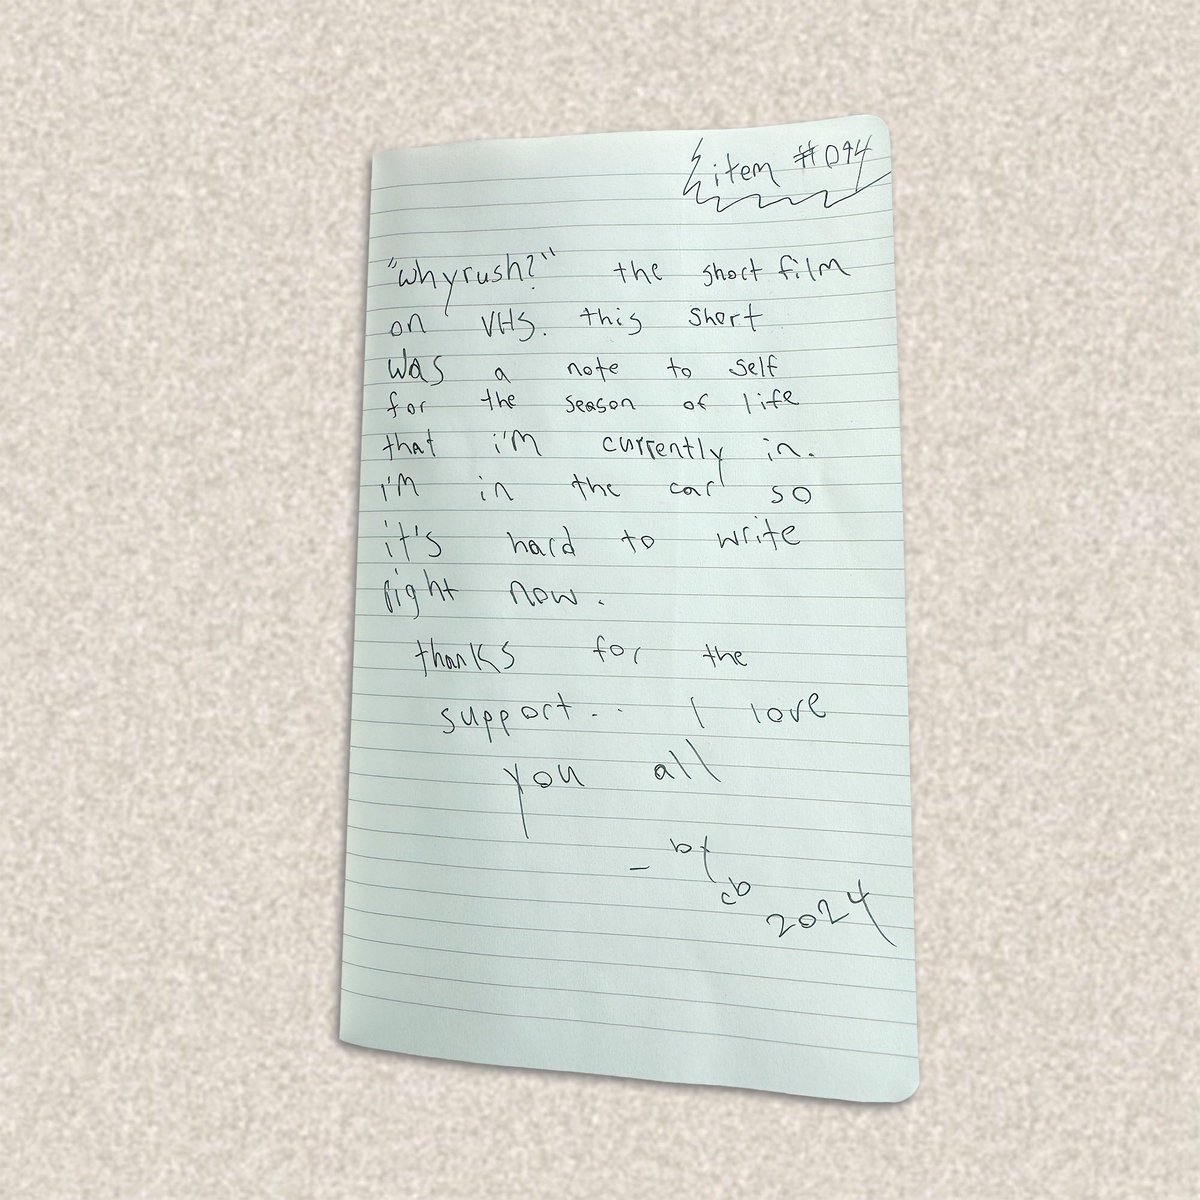 item #094
"whyrush?" the short film
on VHS. this short
was a note to self
for the season of life
that i'm currently in.
i'm in the car so
it's hard to write
right now.
thanks for the
support... I love
you all
- bf
cb
2024